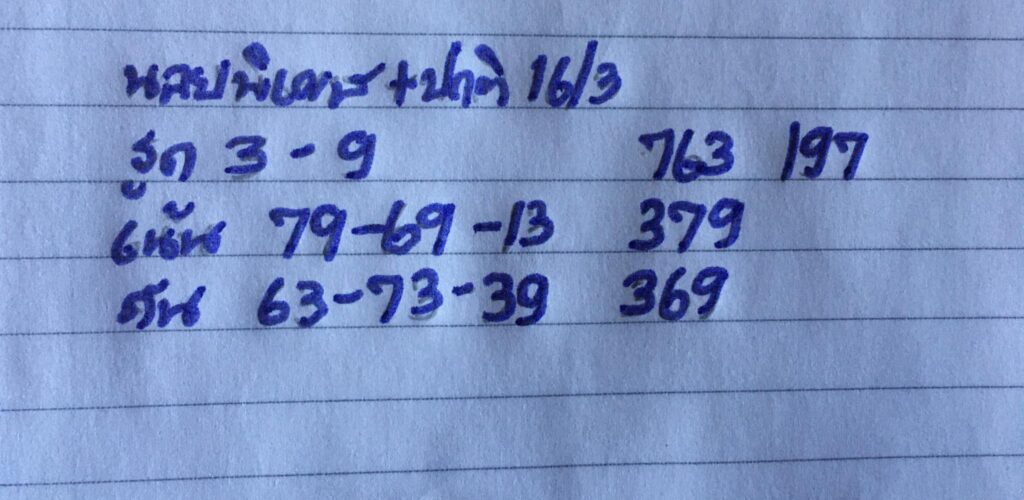 ฮานอยพิเศษ+ปกติ 16/3
รูด 3 - 9 763 197
เน้น 79-69-13 379
63-73-39 369